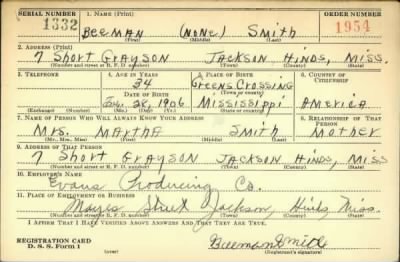 SERIAL NUMBER 1. NAME (Print) ORDER NUMBER
1332 BEEMAN (NONE) Smith 1954
(First) (Middle) (Last)
2. ADDRESS (Print)
7 Short Grayson Jackson, Hinds, Miss.
(Number and street or R. F. D. number) (Town) (County) (State)
3. TELEPHONE 4. AGE IN YEARS 5. PLACE OF BIRTH 6. COUNTRY OF CITIZENSHIP
34 Greens Crossing
DATE OF BIRTH (Town or county)
28, 1906 Mississippi America
(Exchange) (Number) (Mo.) (Day) (Yr.) (State or country)
7. NAME OF PERSON WHO WILL ALWAYS KNOW YOUR ADDRESS 8. RELATIONSHIP OF THAT PERSON
Mrs. Martha Smith Mother
(Mr., Mrs., Miss) (First) (Middle) (Last)
9. ADDRESS OF THAT PERSON
7 Short Grayson Jackson Hinds, Miss
(Number and street or R. F. D. number) (Town) (County) (State)
10. EMPLOYER'S NAME
Evans Producing Co.
11. PLACE OF EMPLOYMENT OR BUSINESS
Street Jackson, Hinds, Miss.
(Number and street or R. F. D. number) (Town) (County) (State)
I AFFIRM THAT I HAVE VERIFIED ABOVE ANSWERS AND THAT THEY ARE TRUE.
REGISTRATION CARD
D. S. S. Form 1 Beeman Smith
(over) (Registrant's signature)